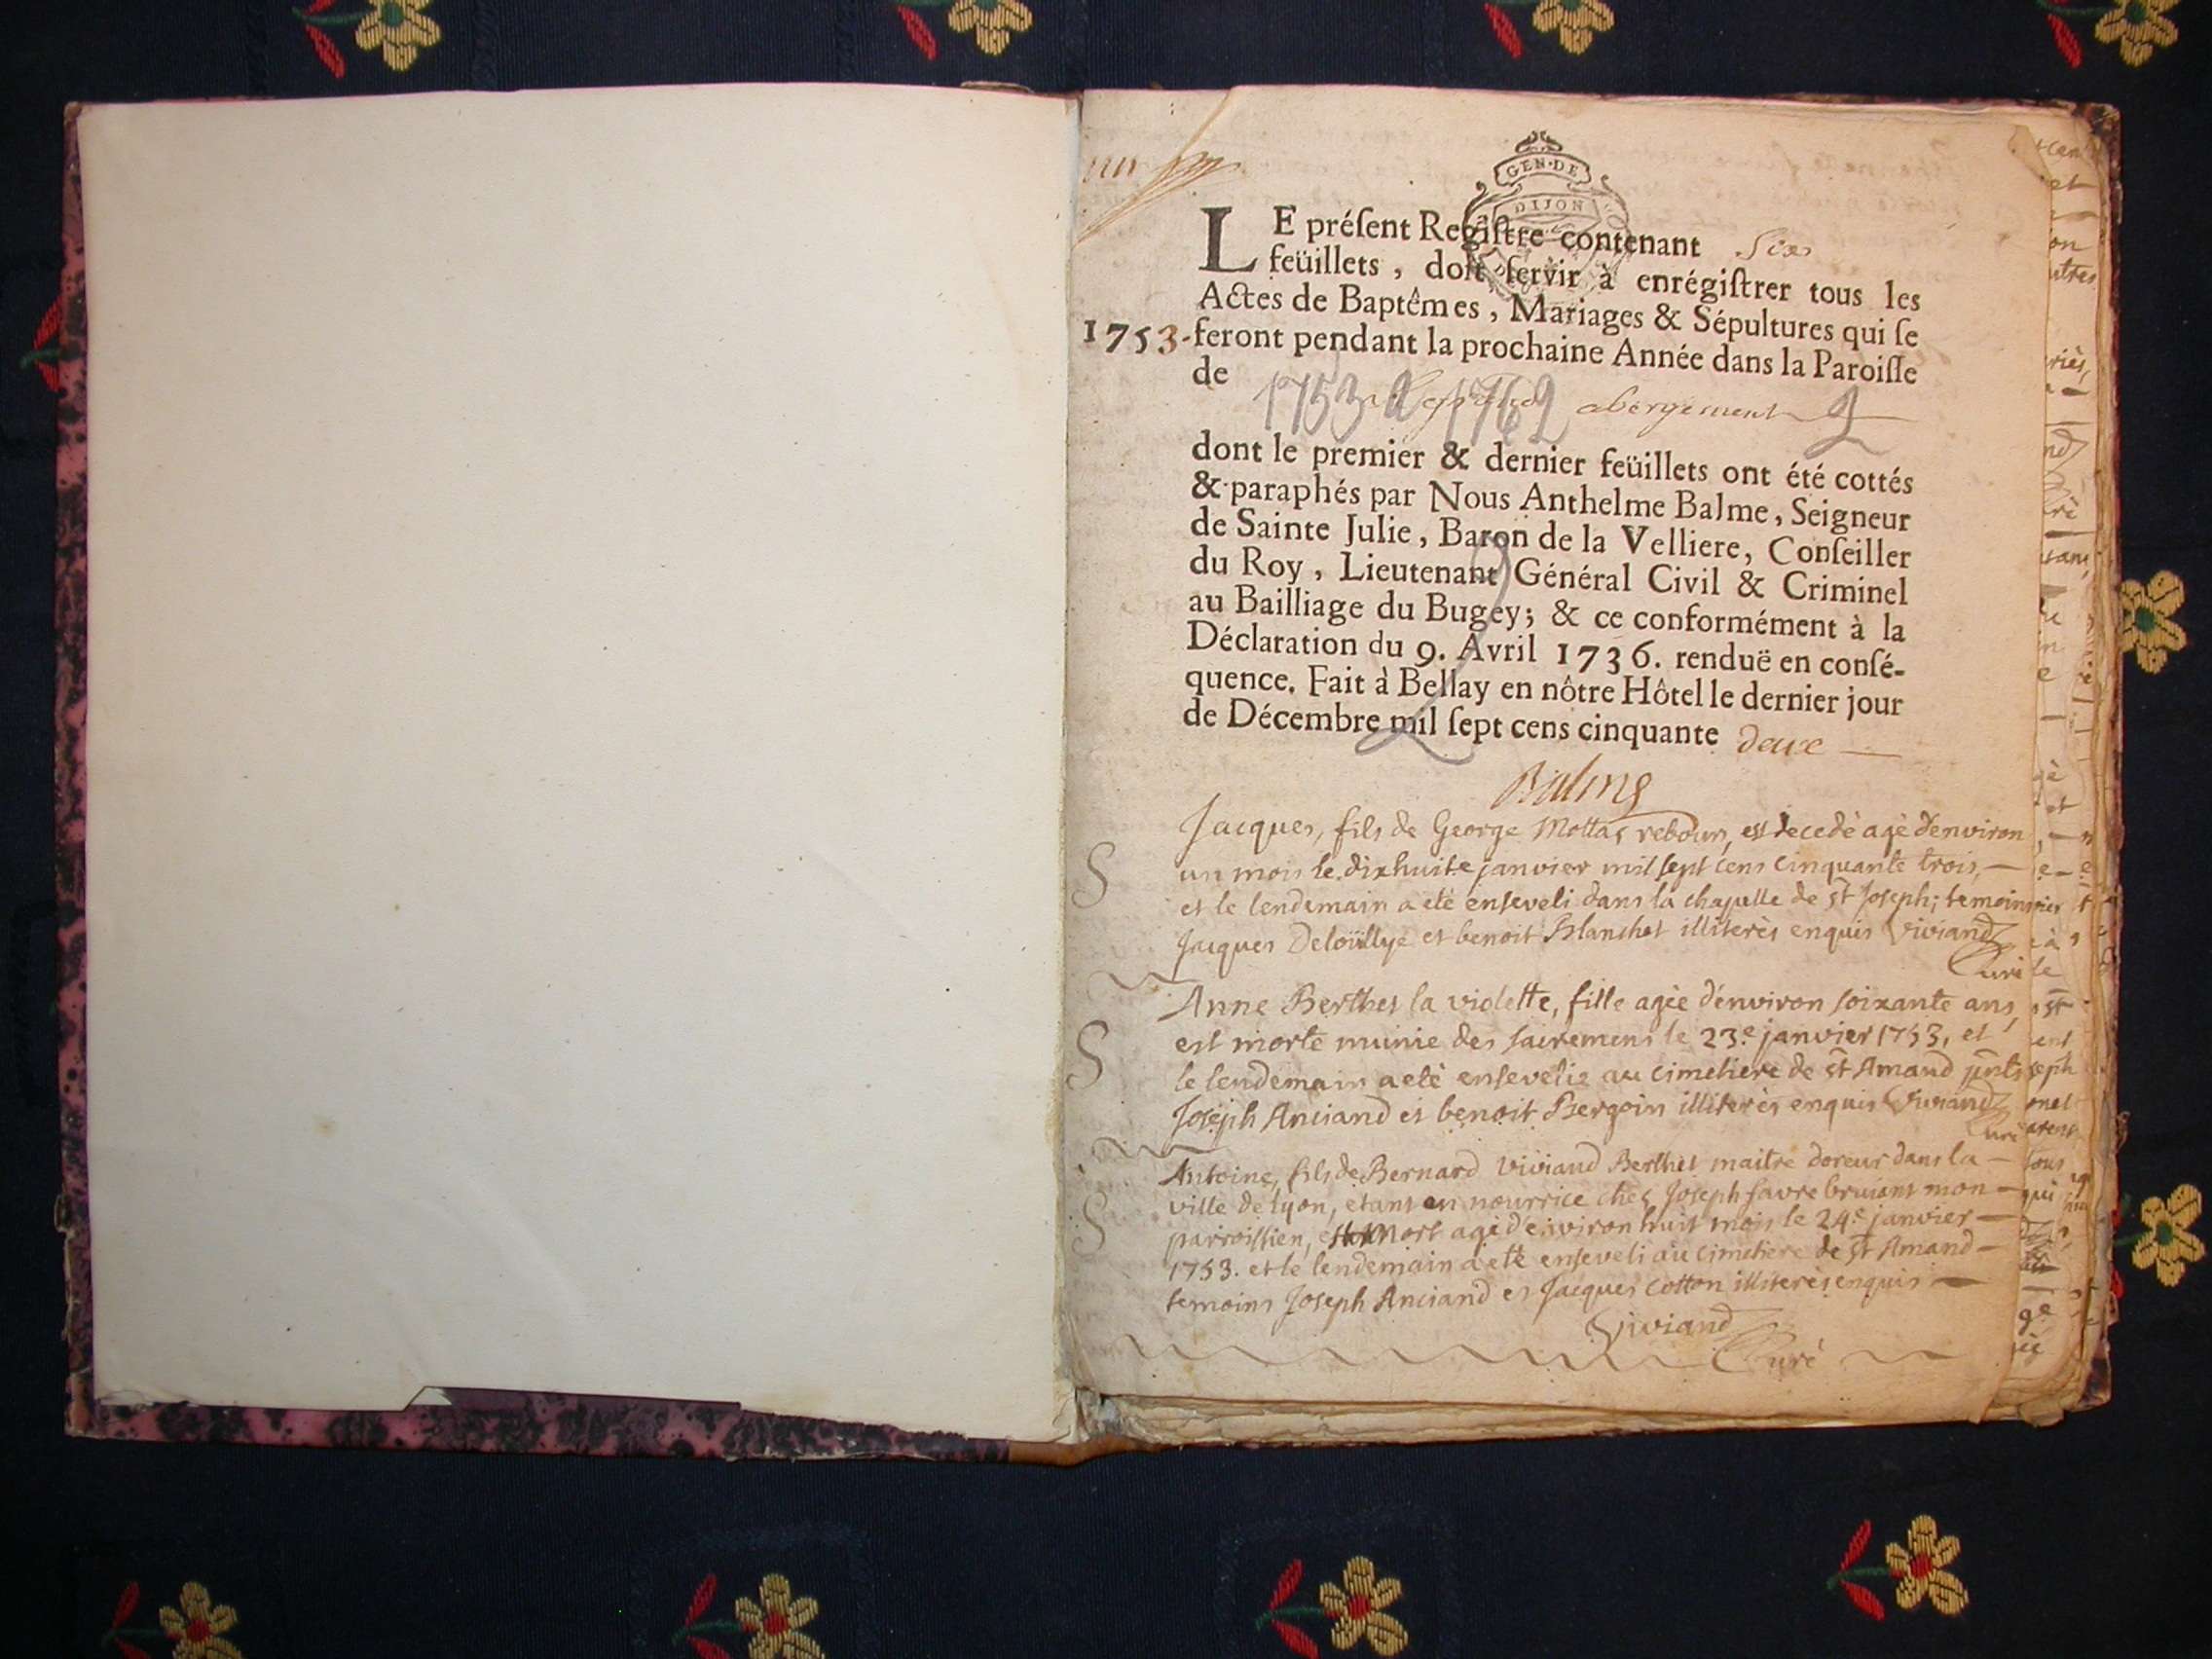 GEN·DE
DIJON
LE préſent Regiſtre contenant Six
feüillets, doit ſervir à enrégiſtrer tous les
Actes de Baptêmes, Mariages & Sépultures qui ſe
1753. feront pendant la prochaine Année dans la Paroiſſe
de abergement
1753 a 1762
dont le premier & dernier feüillets ont été cottés
& paraphés par Nous Anthelme Balme, Seigneur
de Sainte Julie, Baron de la Velliere, Conſeiller
du Roy, Lieutenant Général Civil & Criminel
au Bailliage du Bugey; & ce conformément à la
Déclaration du 9. Avril 1736. renduë en conſé-
quence. Fait à Bellay en nôtre Hôtel le dernier jour
de Décembre mil ſept cens cinquante deux
Balme
Jacques, fils de George Mottas rebour, est decedè agè d'environ
S un mois le dixhuite janvier mil sept cens cinquante trois,
et le lendemain a etè enseveli dans la chapelle de st Joseph; temoins
Jacques Deloüllye et benoit Blanchet illiterès enquis Viviand
Curè
Anne Berthet la violette, fille agèe d'environ soixante ans,
S est morte munie des sacremens le 23.e janvier 1753, et
le lendemain a etè ensevelie au cimetiere de st Amand pnts
Joseph Anciand et benoit Bergoin illiterès enquis Viviand
Curè
Antoine, fils de Bernard Viviand Berthet maitre doreur dans la
S ville de lyon, etant en nourrice chez Joseph favre bruiant mon
parroissien, est mort agè d'environ huit mois le 24.e janvier
1753. et le lendemain a etè enseveli au cimetiere de st Amand
temoins Joseph Anciand et Jacques Cotton illiterès enquis
Viviand
Curè